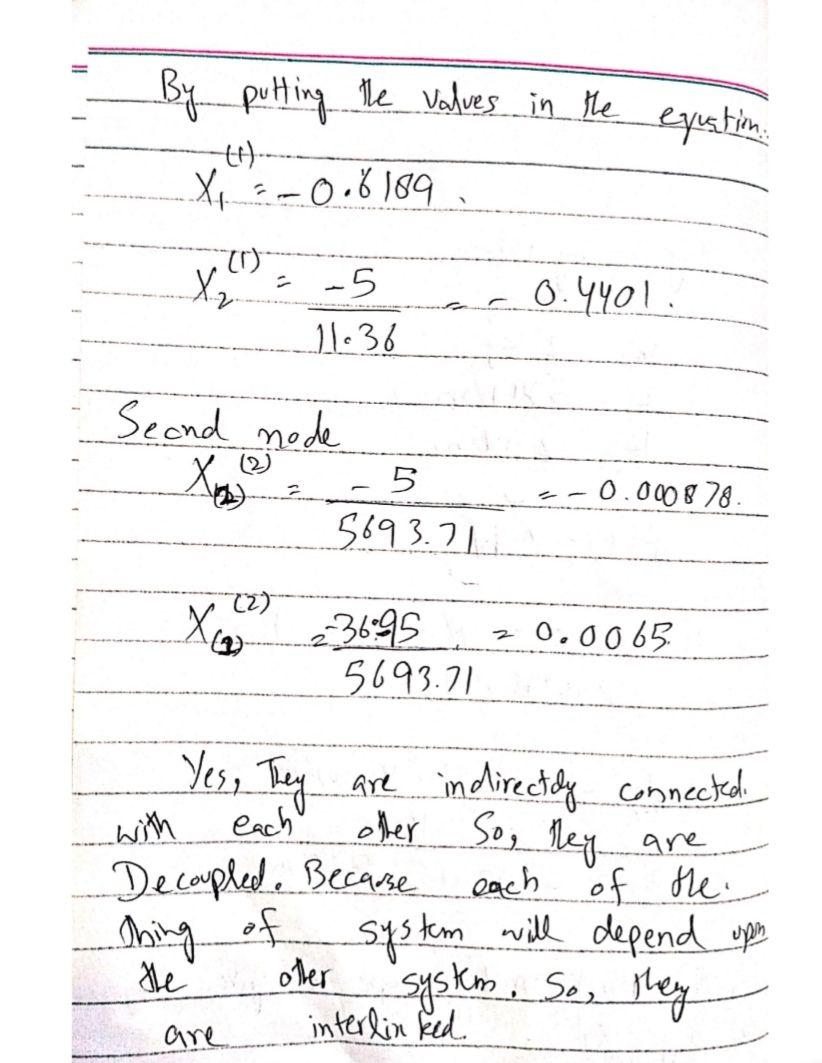 By putting the values in the equation.
X₁⁽¹⁾ = - 0.6189.
X₂⁽¹⁾ = -5 / 11.36 = - 0.4401.
Secnd node
X₍₂₎⁽²⁾ = - 5 / 5693.71 = - 0.000878.
X₍₁₎⁽²⁾ = -36.95 / 5693.71 = 0.0065
Yes, They are indirectly connected.
with each other So, they are
Decoupled. Because each of the.
thing of system will depend upon
the other system. So, they
are interlinked.